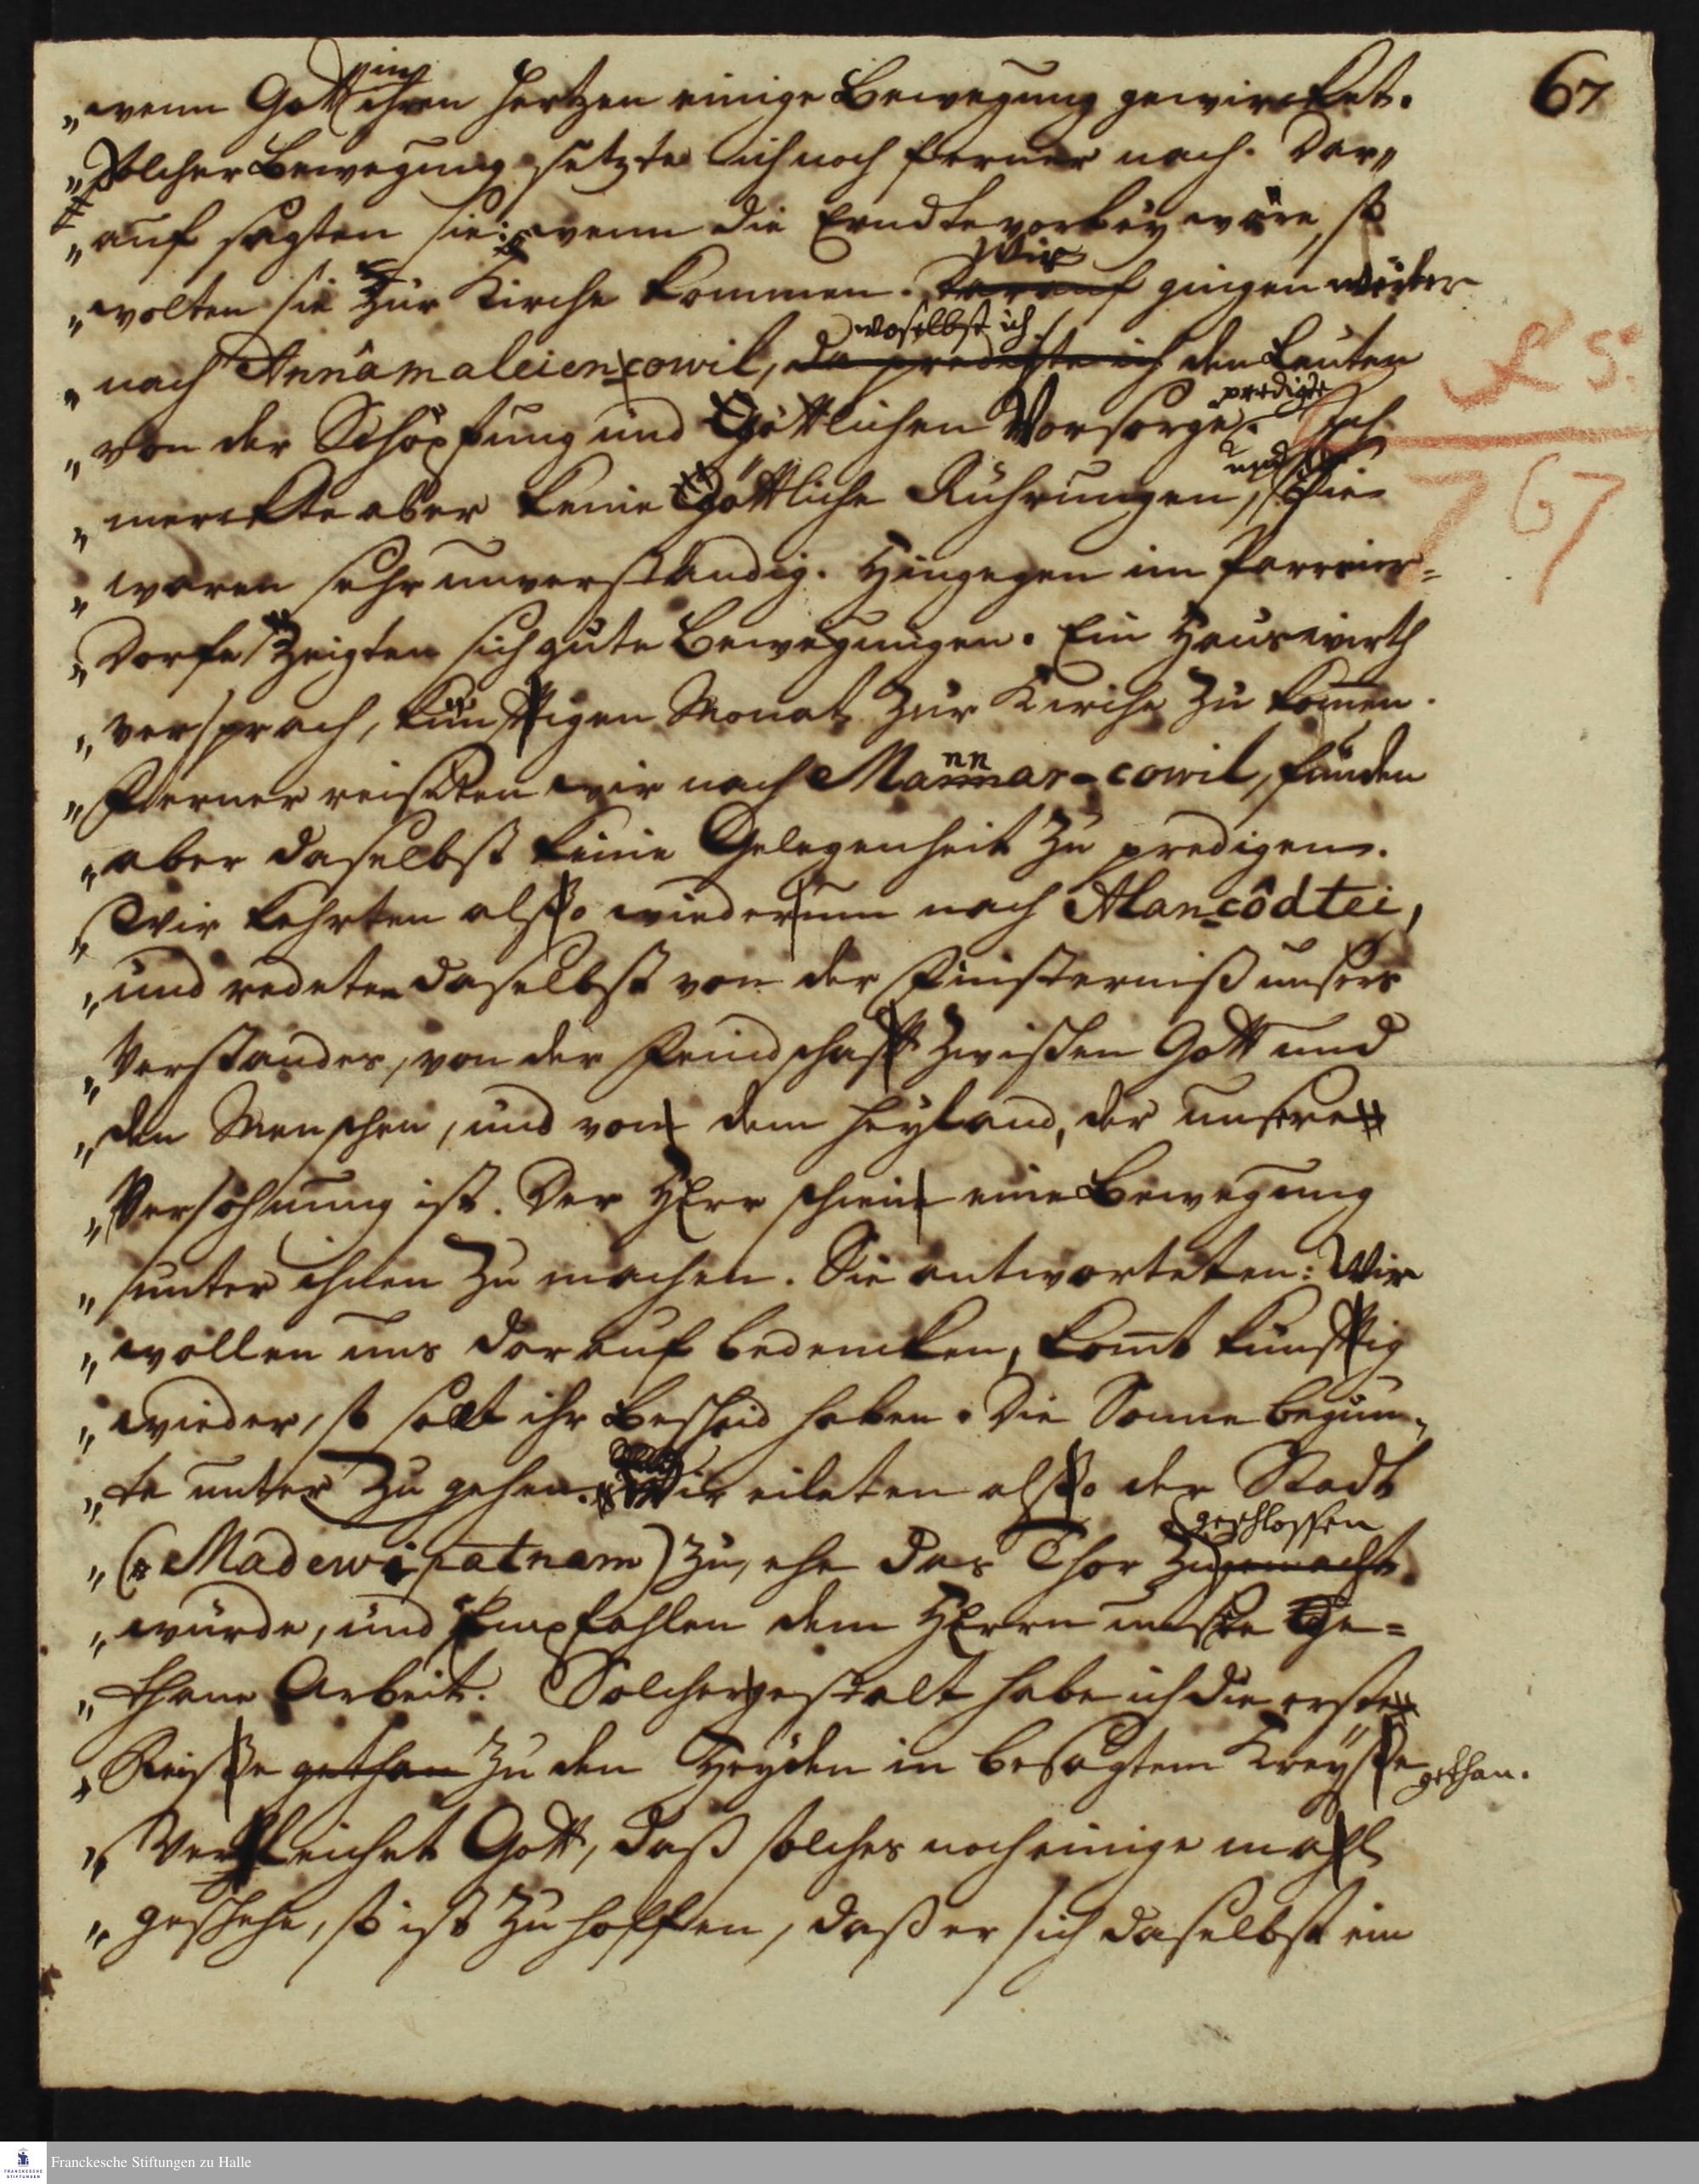 67
„wenn Gott in ihren Hertzen einige Bewegung gewircket.
„Solcher Bewegung setzte ich noch ferner nach. Dar„
„auf sagten sie: wenn die Erndte vorbey wäre, so
„wolten sie zur Kirche kommen. Darauf Wir gingen weiter
„nach Annâmaleien-cowil, da predigte ich woselbst ich den Leuten
„von der Schöpfung und Göttlichen Vorsorge predigte. Ich
„merckte aber keine Göttliche Rührungen, und sie
„waren sehr unverständig. Hingegen im Parreier=
„Dorfe zeigten sich gute Bewegungen. Ein Hauswirth
„versprach, künfftigen Monat zur Kirche zu kom̄en.
„Ferner reiseten wir nach Mannar-cowil, funden
„aber daselbst keine Gelegenheit zu predigen.
„Wir kehrten also wiederum nach Alancôdtei,
„und redeten daselbst von der Finsterniß unsers
„Verstandes, von der Feindschafft zwischen Gott und
„den Menschen, und von dem Heyland, der unsere
„Versöhnung ist. Der HErr schien eine Bewegung
„unter ihnen zu machen. Sie antworteten: Wir
„wollen uns darauf bedencken, kom̄t künfftig
„wieder, so solt ihr Bescheid haben. Die Sonne begun„
„te unter zu gehen. Wir eileten also der Stadt
„(Madewipatnam) zu, ehe das Thor zugemacht geschlossen
„würde, und empfahlen dem HErrn unsere Ge=
„thane Arbeit. Solchergestalt habe ich die erste
„Reise gethan zu den Heyden in besagtem Kreyse gethan.
„Verleihet Gott, daß solches noch einige mahl
„geschehe, so ist zu hoffen, daß er sich daselbst ein
R 5.
767
Franckesche Stiftungen zu Halle
FRANCKESCHE
STIFTUNGEN